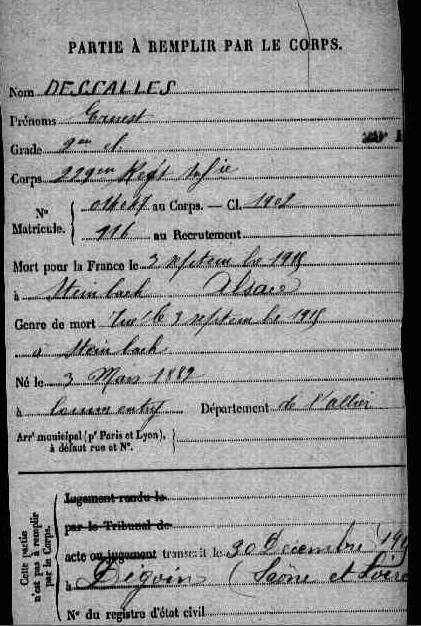 PARTIE À REMPLIR PAR LE CORPS.
Nom DESSALLES
Prénoms Ernest
Grade 2me cl
Corps 229me Regt Inf ie
Nº Matricule. { au Corps. — Cl. 1902
916 au Recrutement
Mort pour la France le 3 septembre 1915
à Steinbach Alsace
Genre de mort Tué le 3 septembre 1915
à Steinbach
Né le 3 Mars 1882
à Commentry Département de l'allier
Arrt municipal (pr Paris et Lyon), à défaut rue et Nº. }
Cette partie n'est pas à remplir par le Corps.
Jugement rendu le
par le Tribunal de
acte ou jugement transcrit le 30 Décembre 191
à Digoin (Saône et Loire
Nº du registre d'état civil